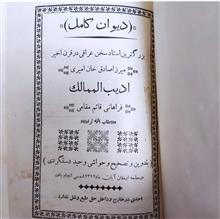 (دیوان کامل)
بزرگترین استاد سخن عراقی در قرن اخیر
میرزا صادق خان امیری
ادیب الممالک
فراهانی قائم مقامی
بتدوین و تصحیح و حواشی وحید دستگردی